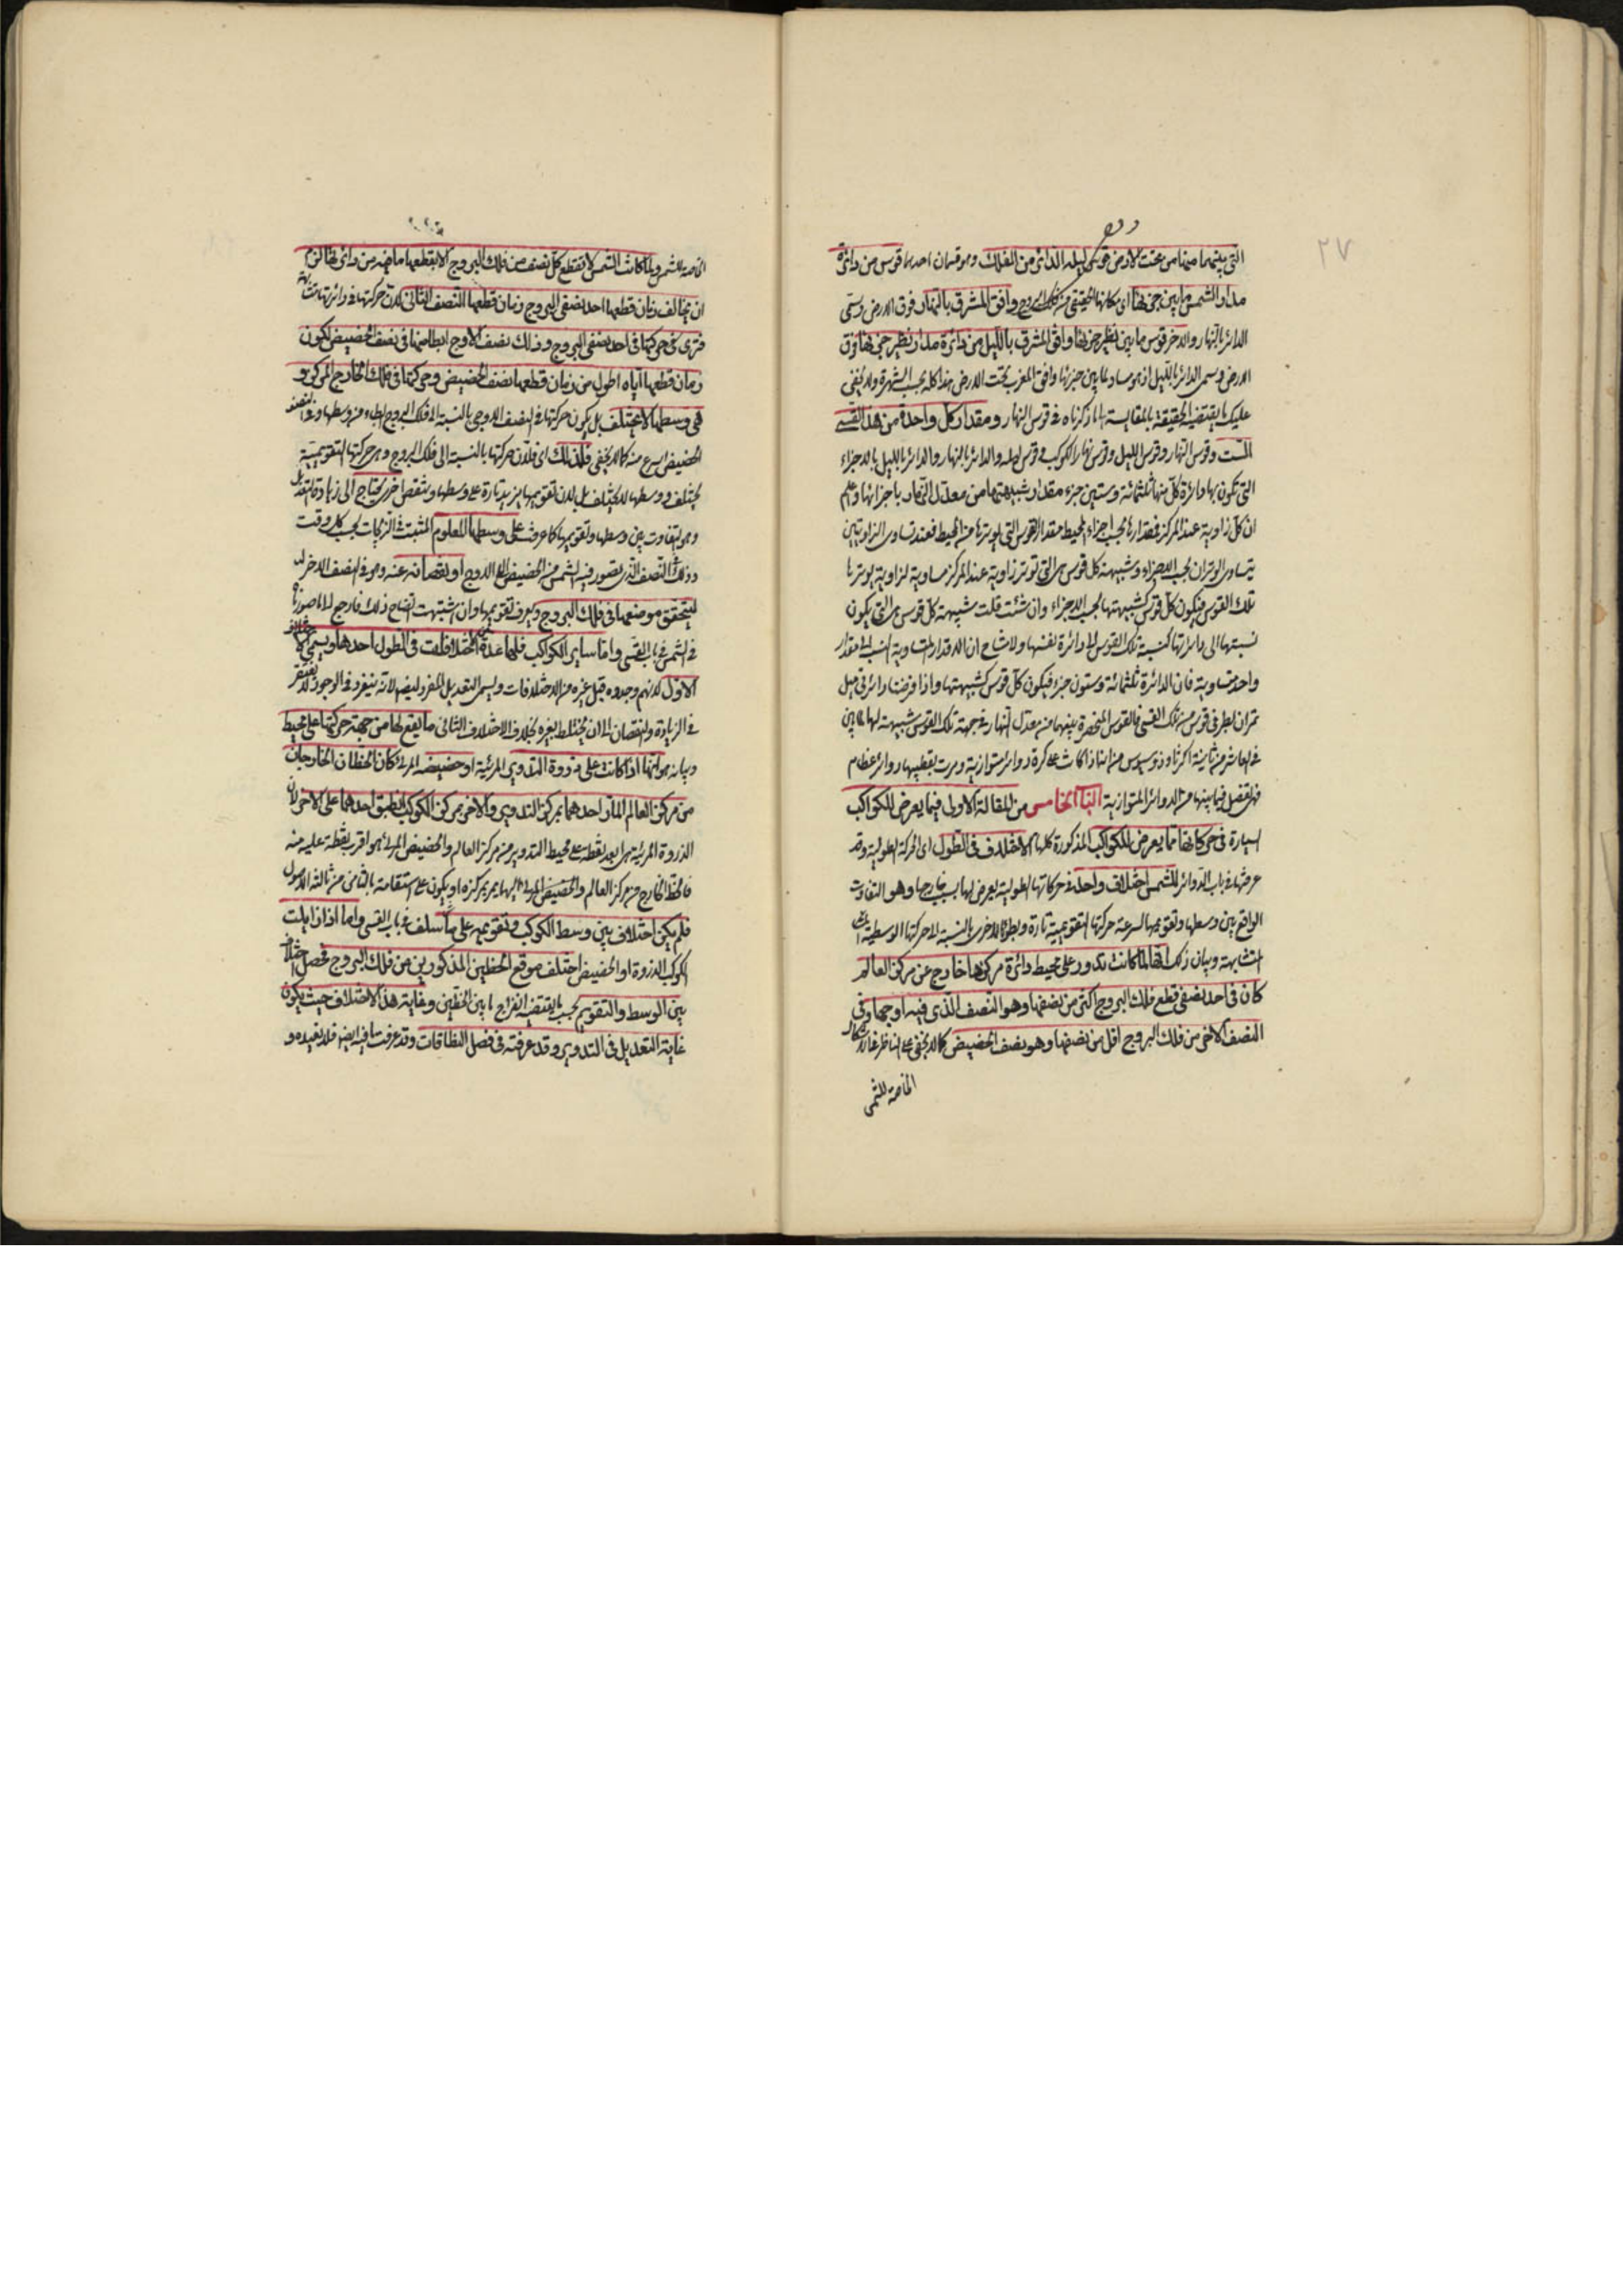 ٢٧
التى بينهما منها من تحت الارض قوس ليله الدائر من الفلك وهو قسمان احدهما قوس من دائرة
مدار الشمس ما بين جزئها اى مكانها الحقيقى من فلك البروج وافق المشرق بالنهار فوق الارض وسمى
الدائر بالنهار والاخر قوس ما بين نظير جزئها وافق المشرق بالليل من دائرة مدار نظير جزئها فوق
الارض وسمى الدائر بالليل اذ هو مساو لما بين جزئها وافق المغرب تحت الارض هذا كله بحسب الشهرة ولا يخفى
عليك ما يقتضيه الحقيقة بالمقايسة الى ما ذكرناه فى قوس النهار ومقدار كل واحدة من هذه القسى
الست وقوس النهار وقوس الليل وقوس نهار الكوكب وقوس ليله والدائر بالنهار والدائر بالليل بالاجزاء
التى تكون بها دائرة كل منها ثلثمائة وستين جزء مقدار شبيهتها من معدل النهار باجزائها واعلم
ان كل زاوية عند المركز فمقدارها بحسب اجزاء المحيط مقدار القوس التى يوترها من المحيط فعند تساوى الزاويتين
يتساوى الوتران بحسب الاجزاء وشبيهة كل قوس هى التى توتر زاوية عند المركز مساوية لزاوية يوترها
تلك القوس فيكون كل قوس كشبيهتها بحسب الاجزاء وان شئت قلت شبيهة كل قوس هى التى يكون
نسبتها الى دائرتها كنسبة تلك القوس الى دائرة نفسها ولا شك ان الاقدار المتساوية النسب الى مقدار
واحد متساوية فان الدائرة ثلثمائة وستون جزء فيكون كل قوس كشبيهتها واذا فرضنا دائرتى ميل
تمران بطرفى قوس من تلك القسى فالقوس المنحصرة بينهما من معدل النهار فى جهة تلك القوس شبيهة لها لما بين
فى العاشر من ثانية اكر ثاوذوسيوس من انه اذا كانت على كرة دوائر متوازية ومرت بقطبيها دوائر عظام
فهى تفصل فيما بينها من الدوائر المتوازية الباب الخامس من المقالة الاولى فيما يعرض للكواكب
السيارة فى حركاتها مما يعرض للكواكب المذكورة كلها الاختلاف فى الطول اى الحركة الطولية وقد
عرفتها فى باب الدوائر للشمس اختلاف واحد فى حركاتها الطولية يعرض لها بسبب خارجها وهو التفاوت
الواقع بين وسطها وتقويمها لسرعة حركتها التقويمية تارة وبطؤها اخرى بالنسبة الى حركتها الوسطية
المتشابهة وبيان ذلك انها لما كانت تدور على محيط دائرة مركزها خارج عن مركز العالم
كان فى احد نصفى قطع فلك البروج اكثر من نصفها وهو النصف الذى فيه اوجها وفى
النصف الاخر من فلك البروج اقل من نصفها وهو نصف الحضيض كما لا يخفى على الناظر
الخاصة للشمس
الخاصة للشمس ولما كانت الشمس لا تقطع كل نصف من فلك البروج الا بقطعها ما فيه من دائرتها لزم
ان يخالف زمان قطعها احد نصفى البروج زمان قطعها النصف الثانى لان حركتها فى دائرتها متشابهة
فترى حركتها فى احد نصفى البروج وذلك نصف الاوج ابطا منها فى نصف الحضيض لكون
زمان قطعها اياه اطول من زمان قطعها نصف الحضيض وحركتها فى فلك الخارج المركز
هى وسطها لا يختلف بل يكون حركتها فى النصف الاوجى بالنسبة الى فلك البروج ابطاء من وسطها وفى النصف
الحضيض اسرع منه كما لا يخفى فلذلك اى فلان حركتها بالنسبة الى فلك البروج وهى حركتها التقويمية
يختلف ووسطها لا يختلف بل لان تقويمها يزيد تارة على وسطها وينقص اخرى يحتاج الى زيادة التعديل
وهو التفاوت بين وسطها وتقويمها كما عرفت على وسطها المعلوم المثبت فى الزيجات بحسب كل وقت
وذلك فى النصف الذى يتصور فيه الشمس من الحضيض الى الاوج او نقصانه عنه وهو فى النصف الاخر
ليتحقق موضعها فى فلك البروج ويعرف تقويمها وان اشتبهت ايضاح ذلك فارجع الى ما صورناه
فى الشمس فى باب القسى واما ساير الكواكب فلها عدة اختلافات فى الطول احدها ويسمى الاختلاف
الاول لانهم وجدوه قبل غيره من الاختلافات ويسمى التعديل المفرد ايضا لانه ينفرد فى الوجود لا يفتقر
فى الزيادة والنقصان الى ان يختلط بغيره بخلاف الاختلاف الثانى ما يقع لها من جهة حركتها على محيط
وبيانه هو انها اذا كانت على ذروة التدوير المرئية او حضيضه المرئى كان الخطان الخارجان
من مركز العالم المار احدهما بمركز التدوير والاخر بمركز الكوكب ينطبق احدهما على الاخر لان
الذروة المرئية هى ابعد نقطة على محيط التدوير من مركز العالم والحضيض المرئى هو اقرب نقطة عليه منه
فالخط الخارج من مركز العالم والحضيض المرئى اليها يمر بمركزه او يكون على استقامته بالثامن من ثالثة الاصول
فلم يكن اختلاف بين وسط الكوكب وتقويمه على ما سلف فى باب القسى واما اذا زايلت
الكوكب الذروة او الحضيض اختلف موقع الخطين المذكورين من فلك البروج فحصل اختلاف
بين الوسط والتقويم بحسب ما يقتضيه انفراج ما بين الخطين وغاية هذا الاختلاف حيث يكون
غاية التعديل فى التدوير وقد عرفته فى فصل النطاقات وقد عرفت ما فيه ايضا فلا نعيده و